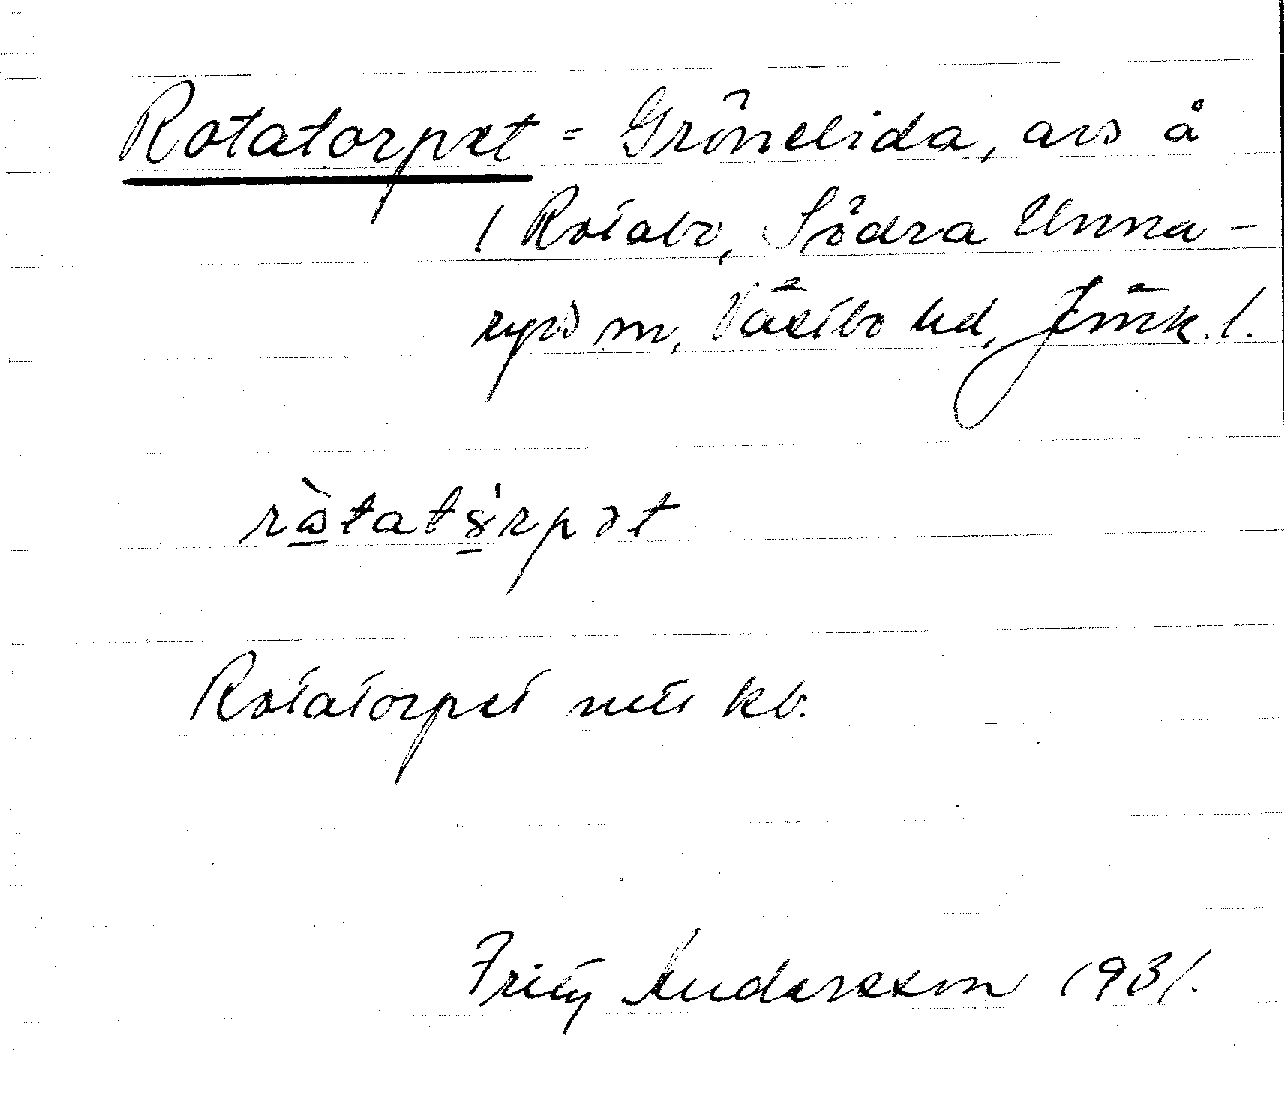 Rotatorpet = Grönelida, avs å
1 Rotabo, Södra Unna-
ryds sn, Västbo hd, Jönk. l.
ràtatɤ́rpət
Rotatorpet
kb.
Fritz Andersson 1931.